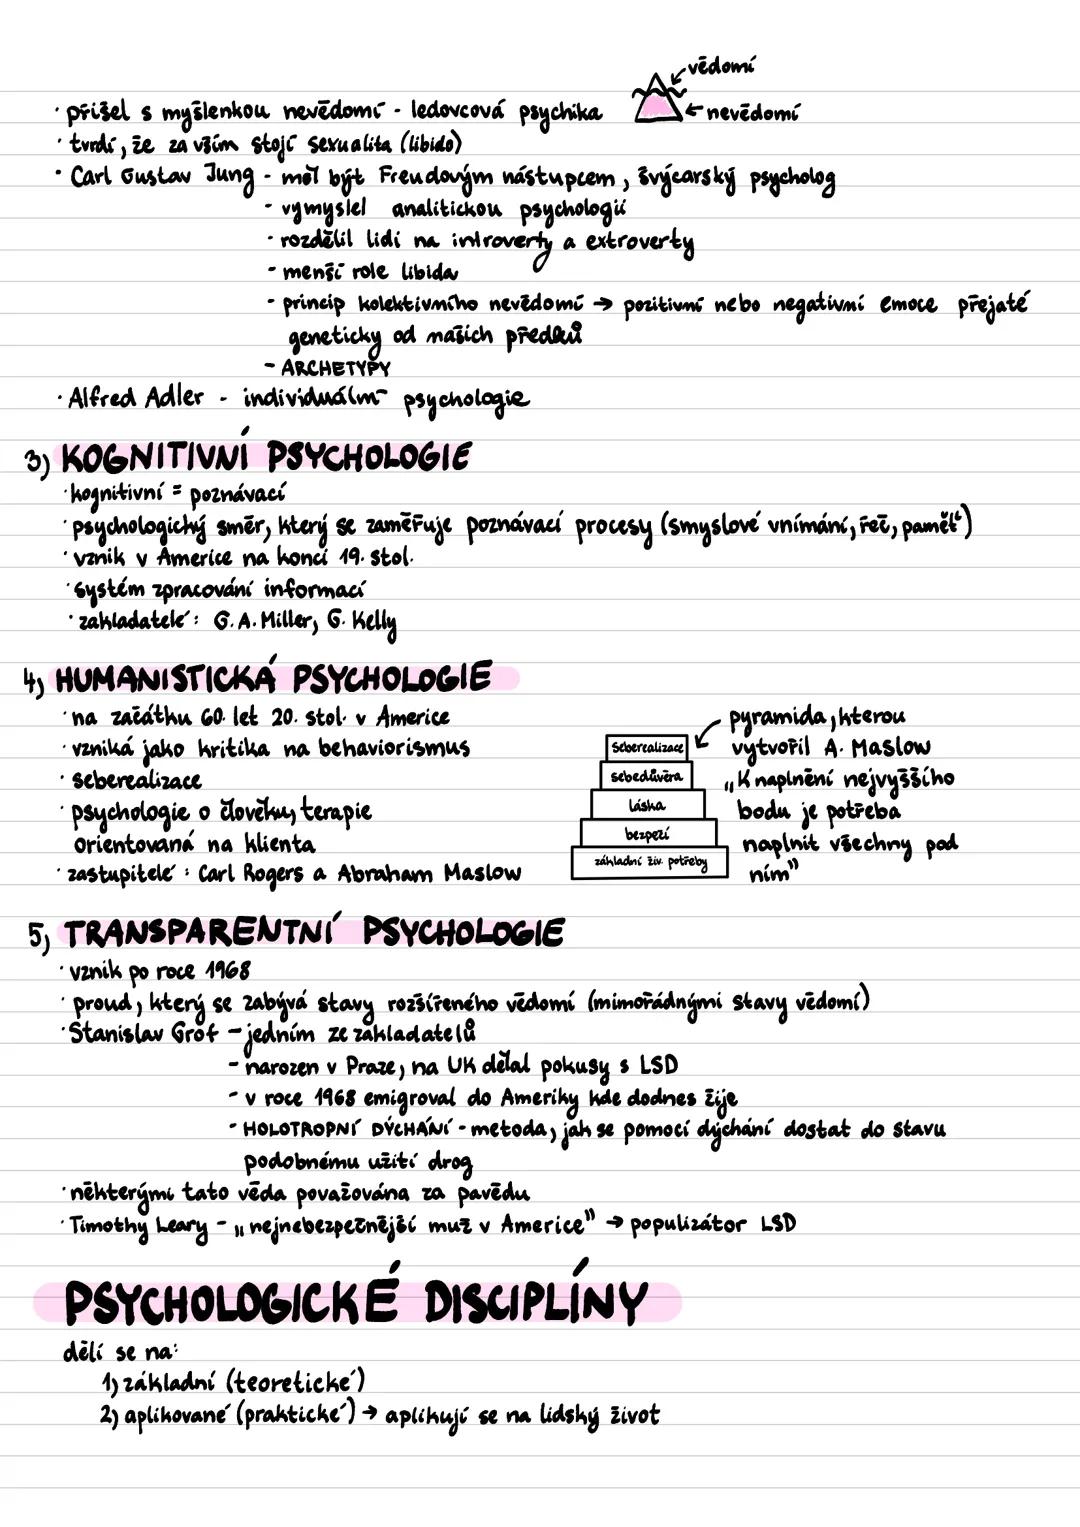 vědomí
· přišel s myšlenkou nevědomí - ledovcová psychika
nevědomí
· tvrdí, že za vším stojí sexualita (libido)
· Carl Gustav Jung - měl být Freudovým nástupcem, švýcarský psycholog
- vymyslel analitickou psychologii
- rozdělil lidi na introverty a extroverty
- menší role libida
- princip kolektivního nevědomí → pozitivní nebo negativní emoce přejaté
geneticky od našich předků
- ARCHETYPY
· Alfred Adler - individuální psychologie
3) KOGNITIVNÍ PSYCHOLOGIE
· kognitivní = poznávací
· psychologický směr, který se zaměřuje poznávací procesy (smyslové vnímání, řeč, paměť)
· vznik v Americe na konci 19. stol.
· systém zpracování informací
· zakladatelé: G. A. Miller, G. Kelly
4) HUMANISTICKÁ PSYCHOLOGIE
· na začátku 60. let 20. stol. v Americe
· vzniká jako kritika na behaviorismus
· seberealizace
· psychologie o člověku, terapie
orientovaná na klienta
· zastupitelé: Carl Rogers a Abraham Maslow
Seberealizace
sebedůvěra
láska
bezpečí
základní živ. potřeby
pyramida, kterou
vytvořil A. Maslow
„K naplnění nejvyššího
bodu je potřeba
naplnit všechny pod
ním"
5) TRANSPARENTNÍ PSYCHOLOGIE
· vznik po roce 1968
· proud, který se zabývá stavy rozšířeného vědomí (mimořádnými stavy vědomí)
· Stanislav Grof - jedním ze zakladatelů
- narozen v Praze, na UK dělal pokusy s LSD
- v roce 1968 emigroval do Ameriky kde dodnes žije
- HOLOTROPNÍ DÝCHÁNÍ - metoda, jak se pomocí dýchání dostat do stavu
podobnému užití drog
· některými tato věda považována za pavědu
· Timothy Leary - „nejnebezpečnější muž v Americe" → populizátor LSD
PSYCHOLOGICKÉ DISCIPLÍNY
dělí se na:
1) základní (teoretické)
2) aplikované (praktické) → aplikují se na lidský život